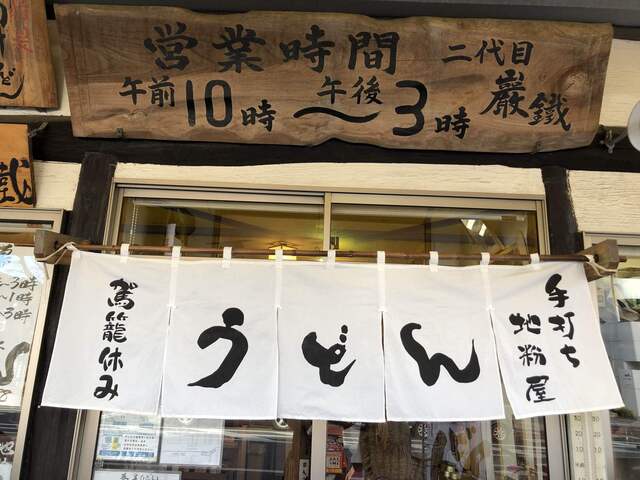 営業時間
二代目
巌鐵
午前10時〜午後3時
うどん
手打ち
地粉屋
駕籠休み
3時
1時
3